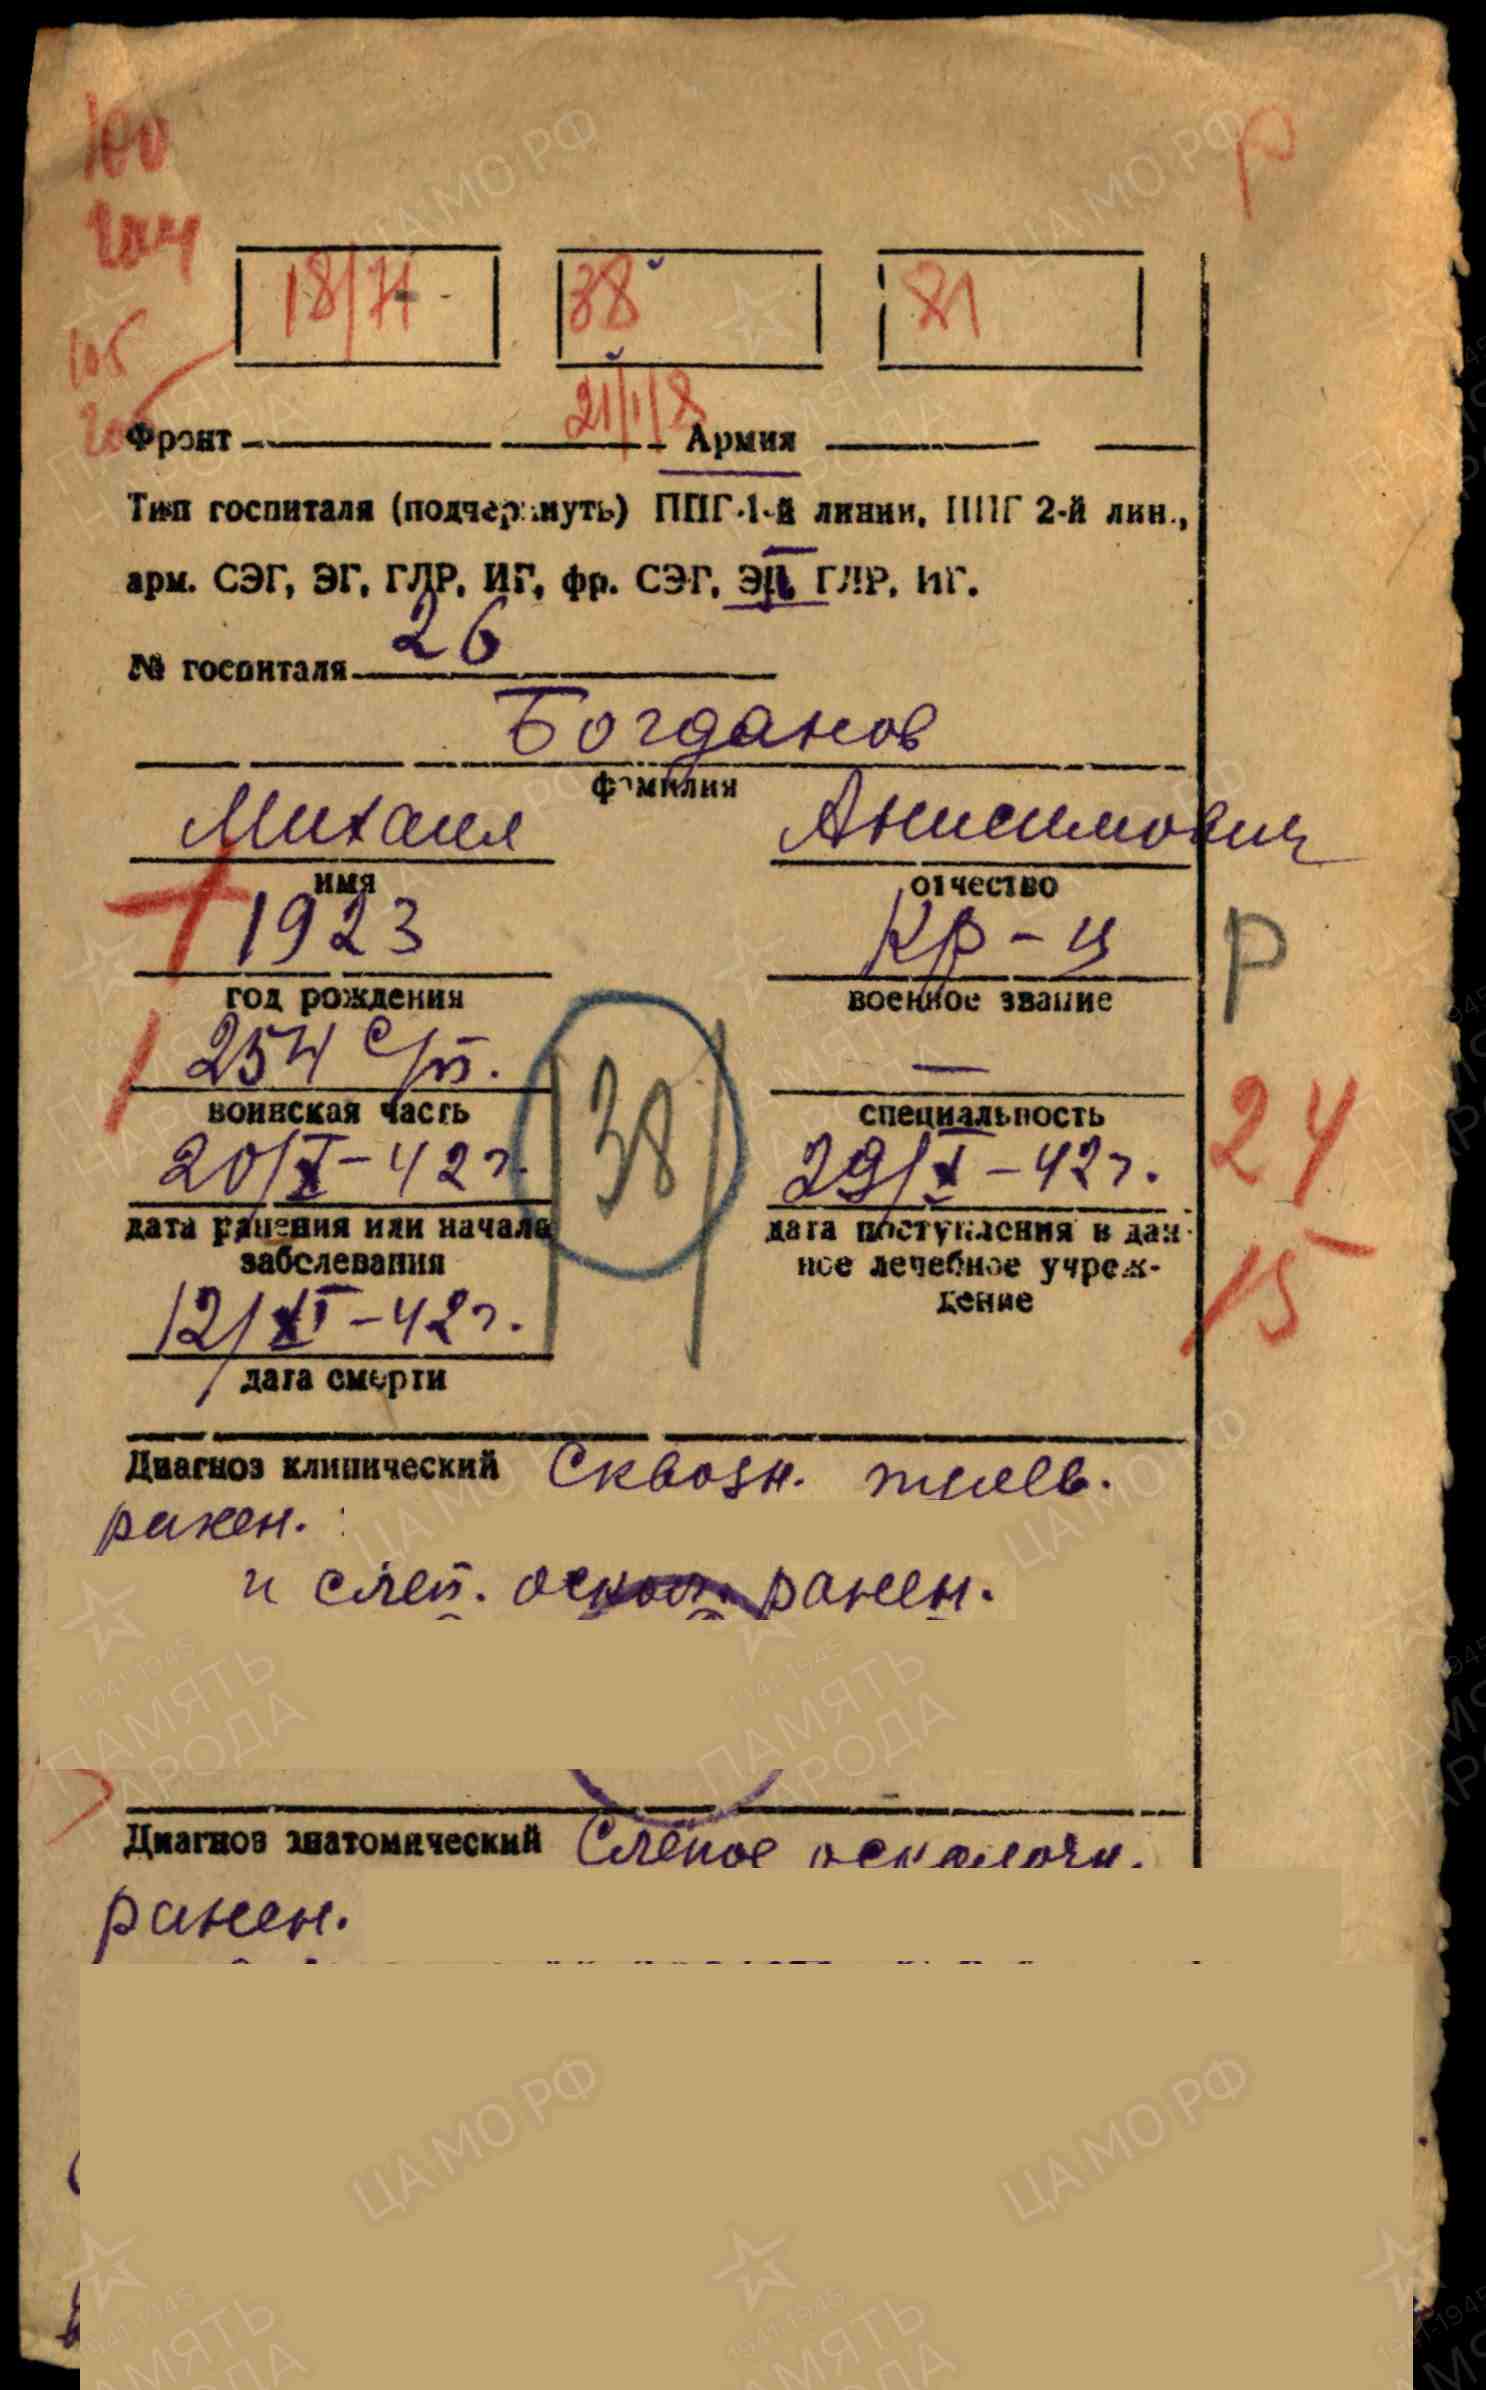 100
р
18/71
38
81
105
21/1/8
Фронт Армия
Тип госпиталя (подчеркнуть) ППГ 1-й линии, ППГ 2-й лин.,
арм. СЭГ, ЭГ, ГЛР, ИГ, фр. СЭГ, ЭП, ГЛР, ИГ.
№ госпиталя 26
Богданов
фамилия
Михаил Анисимович
имя отчество
1923 Кр-ц
год рождения военное звание
Р
254 с/п. —
воинская часть специальность
38
24
20/X-42г. 29/X-42г.
дата ранения или начала заболевания
дата поступления в данное лечебное учреждение
15
12/XI-42г.
дата смерти
Диагноз клинический Сквозн. пулев.
ранен.
и слеп. оскол. ранен.
Диагноз анатомический Слепое осколочн.
ранен.
ЦА МО РФ
ПАМЯТЬ НАРОДА
1941-1945